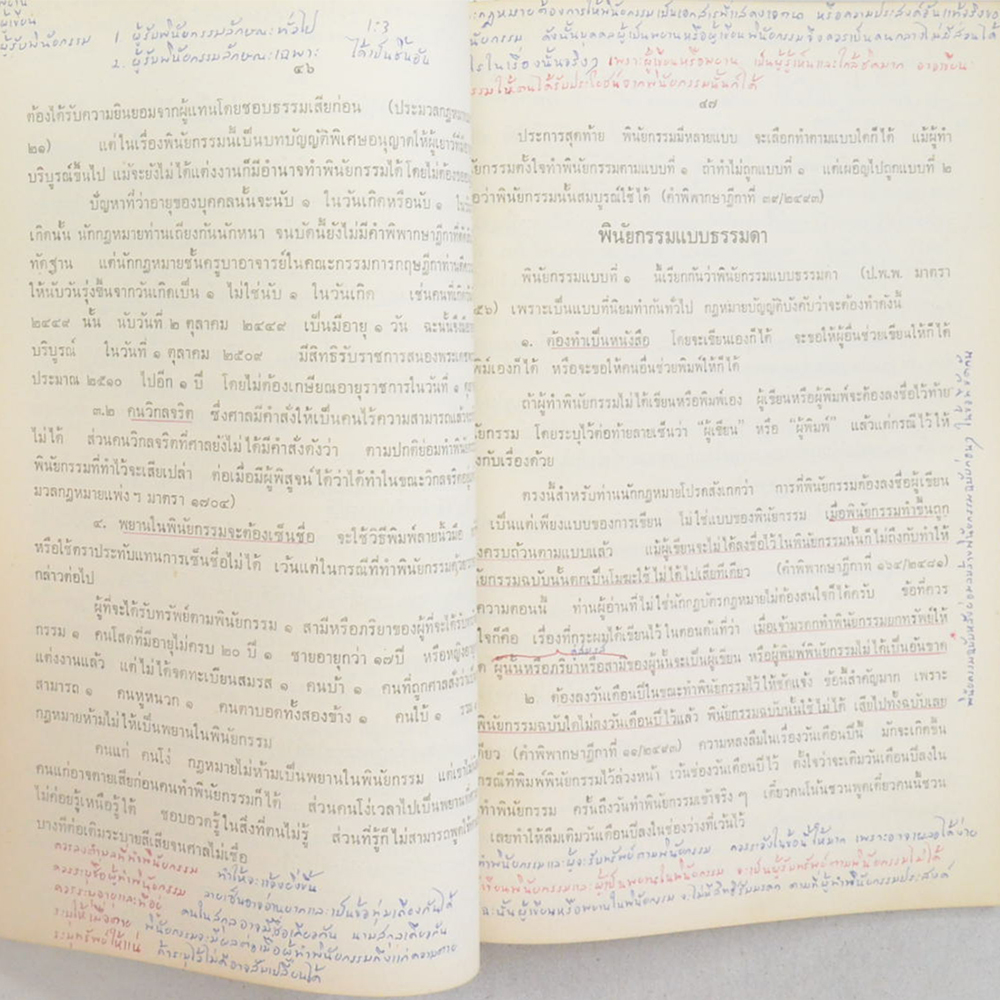 พยาน
ผู้เขียน
ผู้รับพินัยกรรม
1. ผู้รับพินัยกรรมลักษณะทั่วไป 1:3
2. ผู้รับพินัยกรรมลักษณะเฉพาะ ได้เป็นชิ้นอัน
๔๖
ต้องได้รับความยินยอมจากผู้แทนโดยชอบธรรมเสียก่อน (ประมวลกฎหมาย
๒๑) แต่ในเรื่องพินัยกรรมนี้เป็นบทบัญญัติพิเศษอนุญาตให้ผู้เยาว์ที่มีอายุ
บริบูรณ์ขึ้นไป แม้จะยังไม่ได้แต่งงานก็มีอำนาจทำพินัยกรรมได้โดยไม่ต้องขอ
ปัญหาที่ว่าอายุของบุคคลนั้นจะนับ ๑ ในวันเกิดหรือนับ ๑ ใน
เกิดนั้น นักกฎหมายท่านเถียงกันนักหนา จนบัดนี้ยังไม่มีคำพิพากษาฎีกาที่
ทัดฐาน แต่นักกฎหมายชั้นครูบาอาจารย์ในคณะกรรมการกฤษฎีกาท่าน
ให้นับวันรุ่งขึ้นจากวันเกิดเป็น ๑ ไม่ใช่นับ ๑ ในวันเกิด เช่นคนที่เกิด
๒๔๔๙ นั้น นับวันที่ ๒ ตุลาคม ๒๔๔๙ เป็นมีอายุ ๑ วัน ฉะนั้น
บริบูรณ์ ในวันที่ ๑ ตุลาคม ๒๕๐๙ มีสิทธิรับราชการสนองพระเดช
ประมาณ ๒๕๑๐ ไปอีก ๑ ปี โดยไม่ต้องเกษียณอายุราชการในวันที่ ๑ ตุลา
๓.๒ คนวิกลจริต ซึ่งศาลมีคำสั่งให้เป็นคนไร้ความสามารถแล้ว
ไม่ได้ ส่วนคนวิกลจริตที่ศาลยังไม่ได้มีคำสั่งดังว่า ตามปกติย่อมทำพินัย
พินัยกรรมที่ทำไว้จะเสียเปล่า ต่อเมื่อมีผู้พิสูจน์ได้ว่าได้ทำในขณะวิกลจริต
มวลกฎหมายแพ่ง ฯ มาตรา ๑๗๐๔)
๔. พยานในพินัยกรรมจะต้องเซ็นชื่อ จะใช้วิธีพิมพ์ลายนิ้วมือ
หรือใช้ตราประทับแทนการเซ็นชื่อไม่ได้ เว้นแต่ในกรณีที่ทำพินัยกรรมด้วย
กล่าวต่อไป
ผู้ที่จะได้รับทรัพย์ตามพินัยกรรม ๑ สามีหรือภริยาของผู้ที่จะได้รับ
กรรม ๑ คนโสดที่มีอายุไม่ครบ ๒๐ ปี ๑ ชายอายุกว่า ๑๗ ปี หรือหญิงอายุ
แต่งงานแล้ว แต่ไม่ได้จดทะเบียนสมรส ๑ คนบ้า ๑ คนที่ถูกศาลสั่งว่า
สามารถ ๑ คนหูหนวก ๑ คนตาบอดทั้งสองข้าง ๑ คนใบ้ ๑
กฎหมายห้ามไม่ให้เป็นพยานในพินัยกรรม
คนแก่ คนโง่ กฎหมายไม่ห้ามเป็นพยานในพินัยกรรม
คนแก่อาจตายเสียก่อนคนทำพินัยกรรมก็ได้ ส่วนคนโง่เวลาไปเป็นพยานที่
ไม่ค่อยรู้เหนือรู้ใต้ ชอบอวดรู้ในสิ่งที่ตนไม่รู้ ส่วนที่รู้ก็ไม่สามารถพูดให้
บางทีต่อเติมระบายสีเสียจนศาลไม่เชื่อ
ควรลงตำบลที่ทำพินัยกรรม ทำให้จะแจ้งยิ่งขึ้น
ควรระบุชื่อผู้ทำพินัยกรรม ลายเซ็นอาจอ่านยากและเป็นข้อทุ่มเถียงกันได้
ควรระบุอายุและที่อยู่ คนในสกุลอาจมีชื่อเดียวกัน นามสกุลเดียวกัน
ระบุให้เมื่อตาย พินัยกรรมจะมีผลต่อเมื่อผู้ทำพินัยกรรมถึงแก่ความตาย
ระบุทรัพย์ให้แน่ ถ้าระบุไว้ไม่ดีอาจสับเปลี่ยนได้
กฎหมายต้องการให้พินัยกรรมเป็นเอกสารที่แสดงเจตนา หรือความประสงค์อันแท้จริงของ
นัยกรรม ดังนั้นบุคคลผู้เป็นพยานหรือผู้เขียนพินัยกรรมจึงควรเป็นคนกลางไม่มีส่วนได้
ไรในเรื่องนั้นจริงๆ เพราะผู้เขียนหรือพยาน เป็นผู้รู้เห็นและใกล้ชิดมาก อาจเขียน
รรมให้ตนได้รับประโยชน์จากพินัยกรรมนั้นก็ได้
๔๗
ประการสุดท้าย พินัยกรรมมีหลายแบบ จะเลือกทำตามแบบใดก็ได้ แม้ผู้ทำ
ัยกรรมตั้งใจทำพินัยกรรมตามแบบที่ ๑ ถ้าทำไม่ถูกแบบที่ ๑ แต่เผอิญไปถูกแบบที่ ๒
อว่าพินัยกรรมนั้นสมบูรณ์ใช้ได้ (คำพิพากษาฎีกาที่ ๓๙/๒๔๙๓)
พินัยกรรมแบบธรรมดา
พินัยกรรมแบบที่ ๑ นี้เรียกกันว่าพินัยกรรมแบบธรรมดา (ป.พ.พ. มาตรา
๕๖) เพราะเป็นแบบที่นิยมทำกันทั่วไป กฎหมายบัญญัติบังคับว่าจะต้องทำดังนี้
๑. ต้องทำเป็นหนังสือ โดยจะเขียนเองก็ได้ จะขอให้ผู้อื่นช่วยเขียนให้ก็ได้
พิมพ์เองก็ได้ หรือจะขอให้คนอื่นช่วยพิมพ์ให้ก็ได้
ถ้าผู้ทำพินัยกรรมไม่ได้เขียนหรือพิมพ์เอง ผู้เขียนหรือผู้พิมพ์จะต้องลงชื่อไว้ท้าย
ัยกรรม โดยระบุไว้ต่อท้ายลายเซ็นว่า “ผู้เขียน” หรือ “ผู้พิมพ์” แล้วแต่กรณีไว้ให้
งกับเรื่องด้วย
ตรงนี้สำหรับท่านนักกฎหมายโปรดสังเกตว่า การที่พินัยกรรมต้องลงชื่อผู้เขียน
เป็นแต่เพียงแบบของการเขียน ไม่ใช่แบบของพินัยกรรม เมื่อพินัยกรรมทำขึ้นถูก
งครบถ้วนตามแบบแล้ว แม้ผู้เขียนจะไม่ได้ลงชื่อไว้ในพินัยกรรมนั้นก็ไม่ถึงกับทำให้
ัยกรรมฉบับนั้นตกเป็นโมฆะใช้ไม่ได้ไปเสียทีเดียว (คำพิพากษาฎีกาที่ ๑๖๔/๒๔๘๑)
ความตอนนี้ ท่านผู้อ่านที่ไม่ใช่นักกฎบัตรกฎหมายไม่ต้องสนใจก็ได้ครับ ข้อที่ควร
ใจก็คือ เรื่องที่กระผมได้เขียนไว้ในตอนต้นที่ว่า เมื่อเจ้ามรดกทำพินัยกรรมยกทรัพย์ให้
คู่สมรส
ด ผู้นั้นหรือภริยาหรือสามีของผู้นั้นจะเป็นผู้เขียน หรือผู้พิมพ์พินัยกรรมไม่ได้เป็นอันขาด
๒. ต้องลงวันเดือนปีในขณะทำพินัยกรรมไว้ให้ชัดแจ้ง ข้อนี้สำคัญมาก เพราะ
พินัยกรรมฉบับใดไม่ลงวันเดือนปีไว้แล้ว พินัยกรรมฉบับนั้นใช้ไม่ได้ เสียไปทั้งฉบับเลย
ดียว (คำพิพากษาฎีกาที่ ๑๑/๒๔๙๓) ความหลงลืมในเรื่องวันเดือนปีนี้ มักจะเกิดขึ้น
กรณีที่พิมพ์พินัยกรรมไว้ล่วงหน้า เว้นช่องวันเดือนปีไว้ ตั้งใจว่าจะเติมวันเดือนปีลงใน
ทำพินัยกรรม ครั้นถึงวันทำพินัยกรรมเข้าจริง ๆ เดี๋ยวคนโน้นชวนพูดเดี๋ยวคนนี้ชวน
เลยทำให้ลืมเติมวันเดือนปีลงในช่องว่างที่เว้นไว้
ทำพินัยกรรมและผู้จะรับทรัพย์ตามพินัยกรรม ควรระวังในข้อนี้ให้มาก เพราะอาจเผลอได้ง่าย
เขียนพินัยกรรมและผู้เป็นพยานในพินัยกรรม จะเป็นผู้รับทรัพย์ตามพินัยกรรมไม่ได้
ฉะนั้นผู้เขียนหรือพยานในพินัยกรรม จะไม่มีสิทธิรับมรดก ตามที่ผู้ทำพินัยกรรมประสงค์